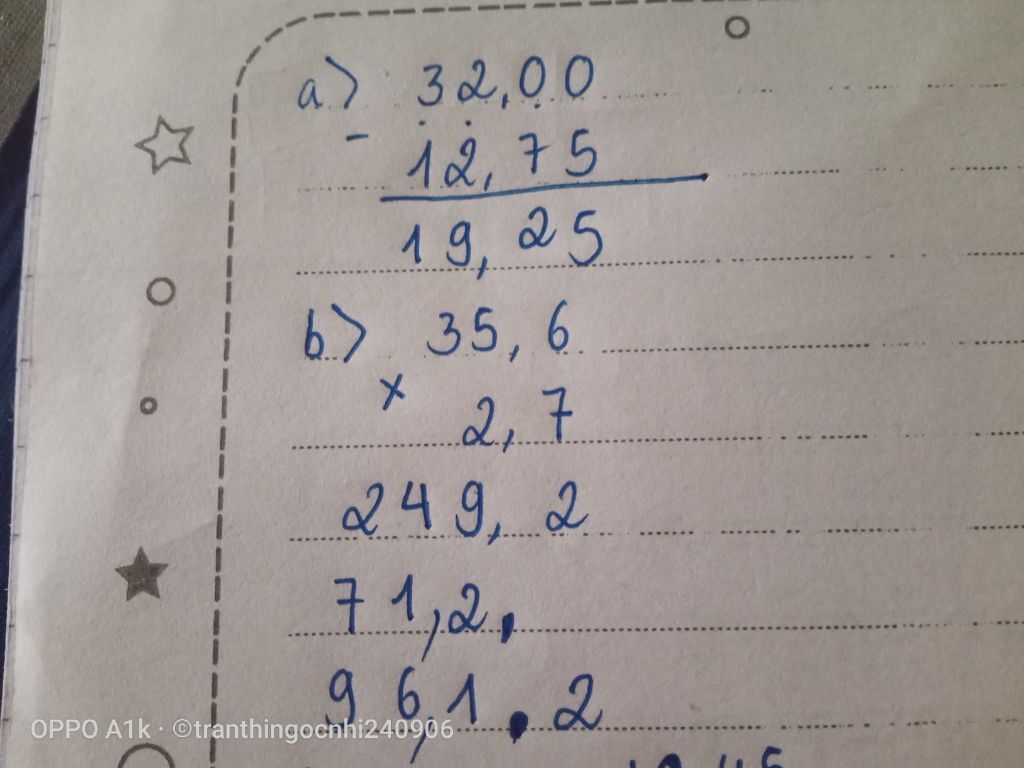 a) 32,00
-
12,75
19,25
b) 35,6
x
2,7
249,2
71,2
96,1.2
OPPO A1k · ©tranthingocnhi240906